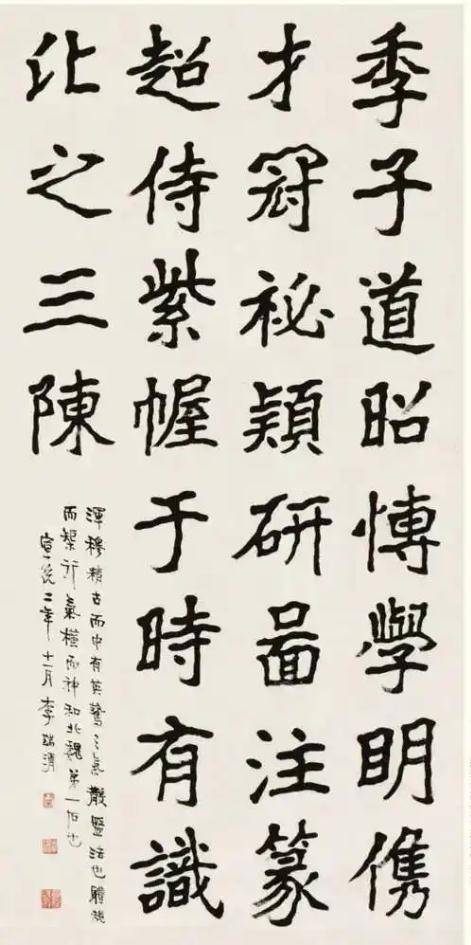 季子道昭愽學明儁
才冠祕穎研啚注篆
超侍紫幄于時有識
比之三陳
渾穆積古而中有英鷙之氣散盤法也體
而行氣橫而神和北魏第一石也
宣統二年十一月李瑞清